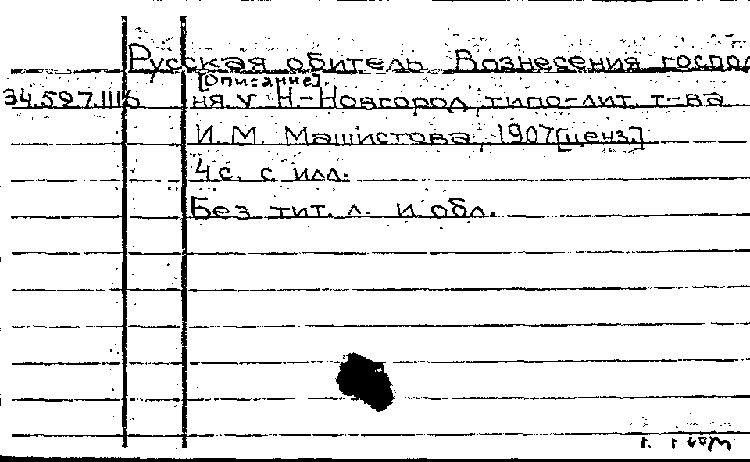 Русская обитель Вознесения господ
[Описание].
34.527.1116 ня. У. Н-Новгород, типо-лит. т-ва
И. М. Машистова, 1907[ценз.]
4 с. с илл.
Без тит. л. и обл.